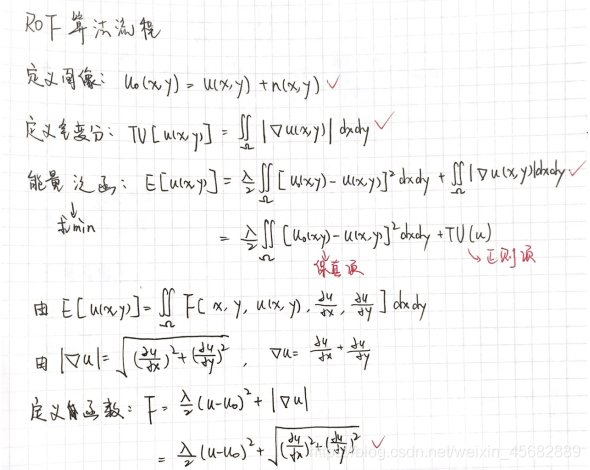 ROF 算法流程
定义图像: u₀(x,y) = u(x,y) + n(x,y) ✓
定义全变分: TV[u(x,y)] = ∬_Ω |∇u(x,y)| dxdy ✓
能量泛函: E[u(x,y)] = λ/2 ∬_Ω [u₀(x,y) - u(x,y)]² dxdy + ∬_Ω |∇u(x,y)| dxdy ✓
↓
求min
= λ/2 ∬_Ω [u₀(x,y) - u(x,y)]² dxdy + TV(u)
保真项 ↘正则项
由 E[u(x,y)] = ∬_Ω F[x, y, u(x,y), ∂u/∂x, ∂u/∂y] dxdy
由 |∇u| = √((∂u/∂x)² + (∂u/∂y)²) , ∇u = ∂u/∂x + ∂u/∂y
定义 函数: F = λ/2 (u-u₀)² + |∇u|
= λ/2 (u-u₀)² + √((∂u/∂x)² + (∂u/∂y)²) ✓
https://blog.csdn.net/weixin_45682889